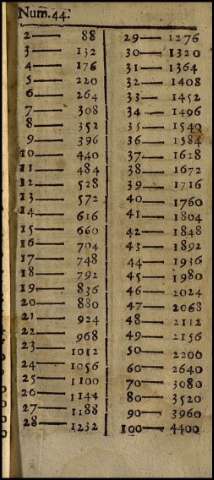 Num. 44.
2— 88
3— 132
4— 176
5— 220
6— 264
7— 308
8— 352
9— 396
10— 440
11— 484
12— 528
13— 572
14— 616
15— 660
16— 704
17— 748
18— 792
19— 836
20— 880
21— 924
22— 968
23— 1012
24— 1056
25— 1100
26— 1144
27— 1188
28— 1232
29— 1276
30— 1320
31— 1364
32— 1408
33— 1452
34— 1496
35— 1540
36— 1584
37— 1628
38— 1672
39— 1716
40— 1760
41— 1804
42— 1848
43— 1892
44— 1936
45— 1980
46— 2024
47— 2068
48— 2112
49— 2156
50— 2200
60— 2640
70— 3080
80— 3520
90— 3960
100— 4400